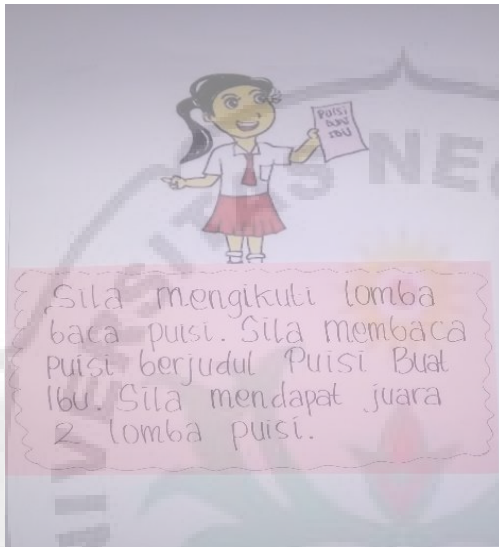 PUISI
BUAT
IBU
Sila mengikuti lomba
baca puisi. Sila membaca
puisi berjudul Puisi Buat
Ibu. Sila mendapat juara
2 lomba puisi.